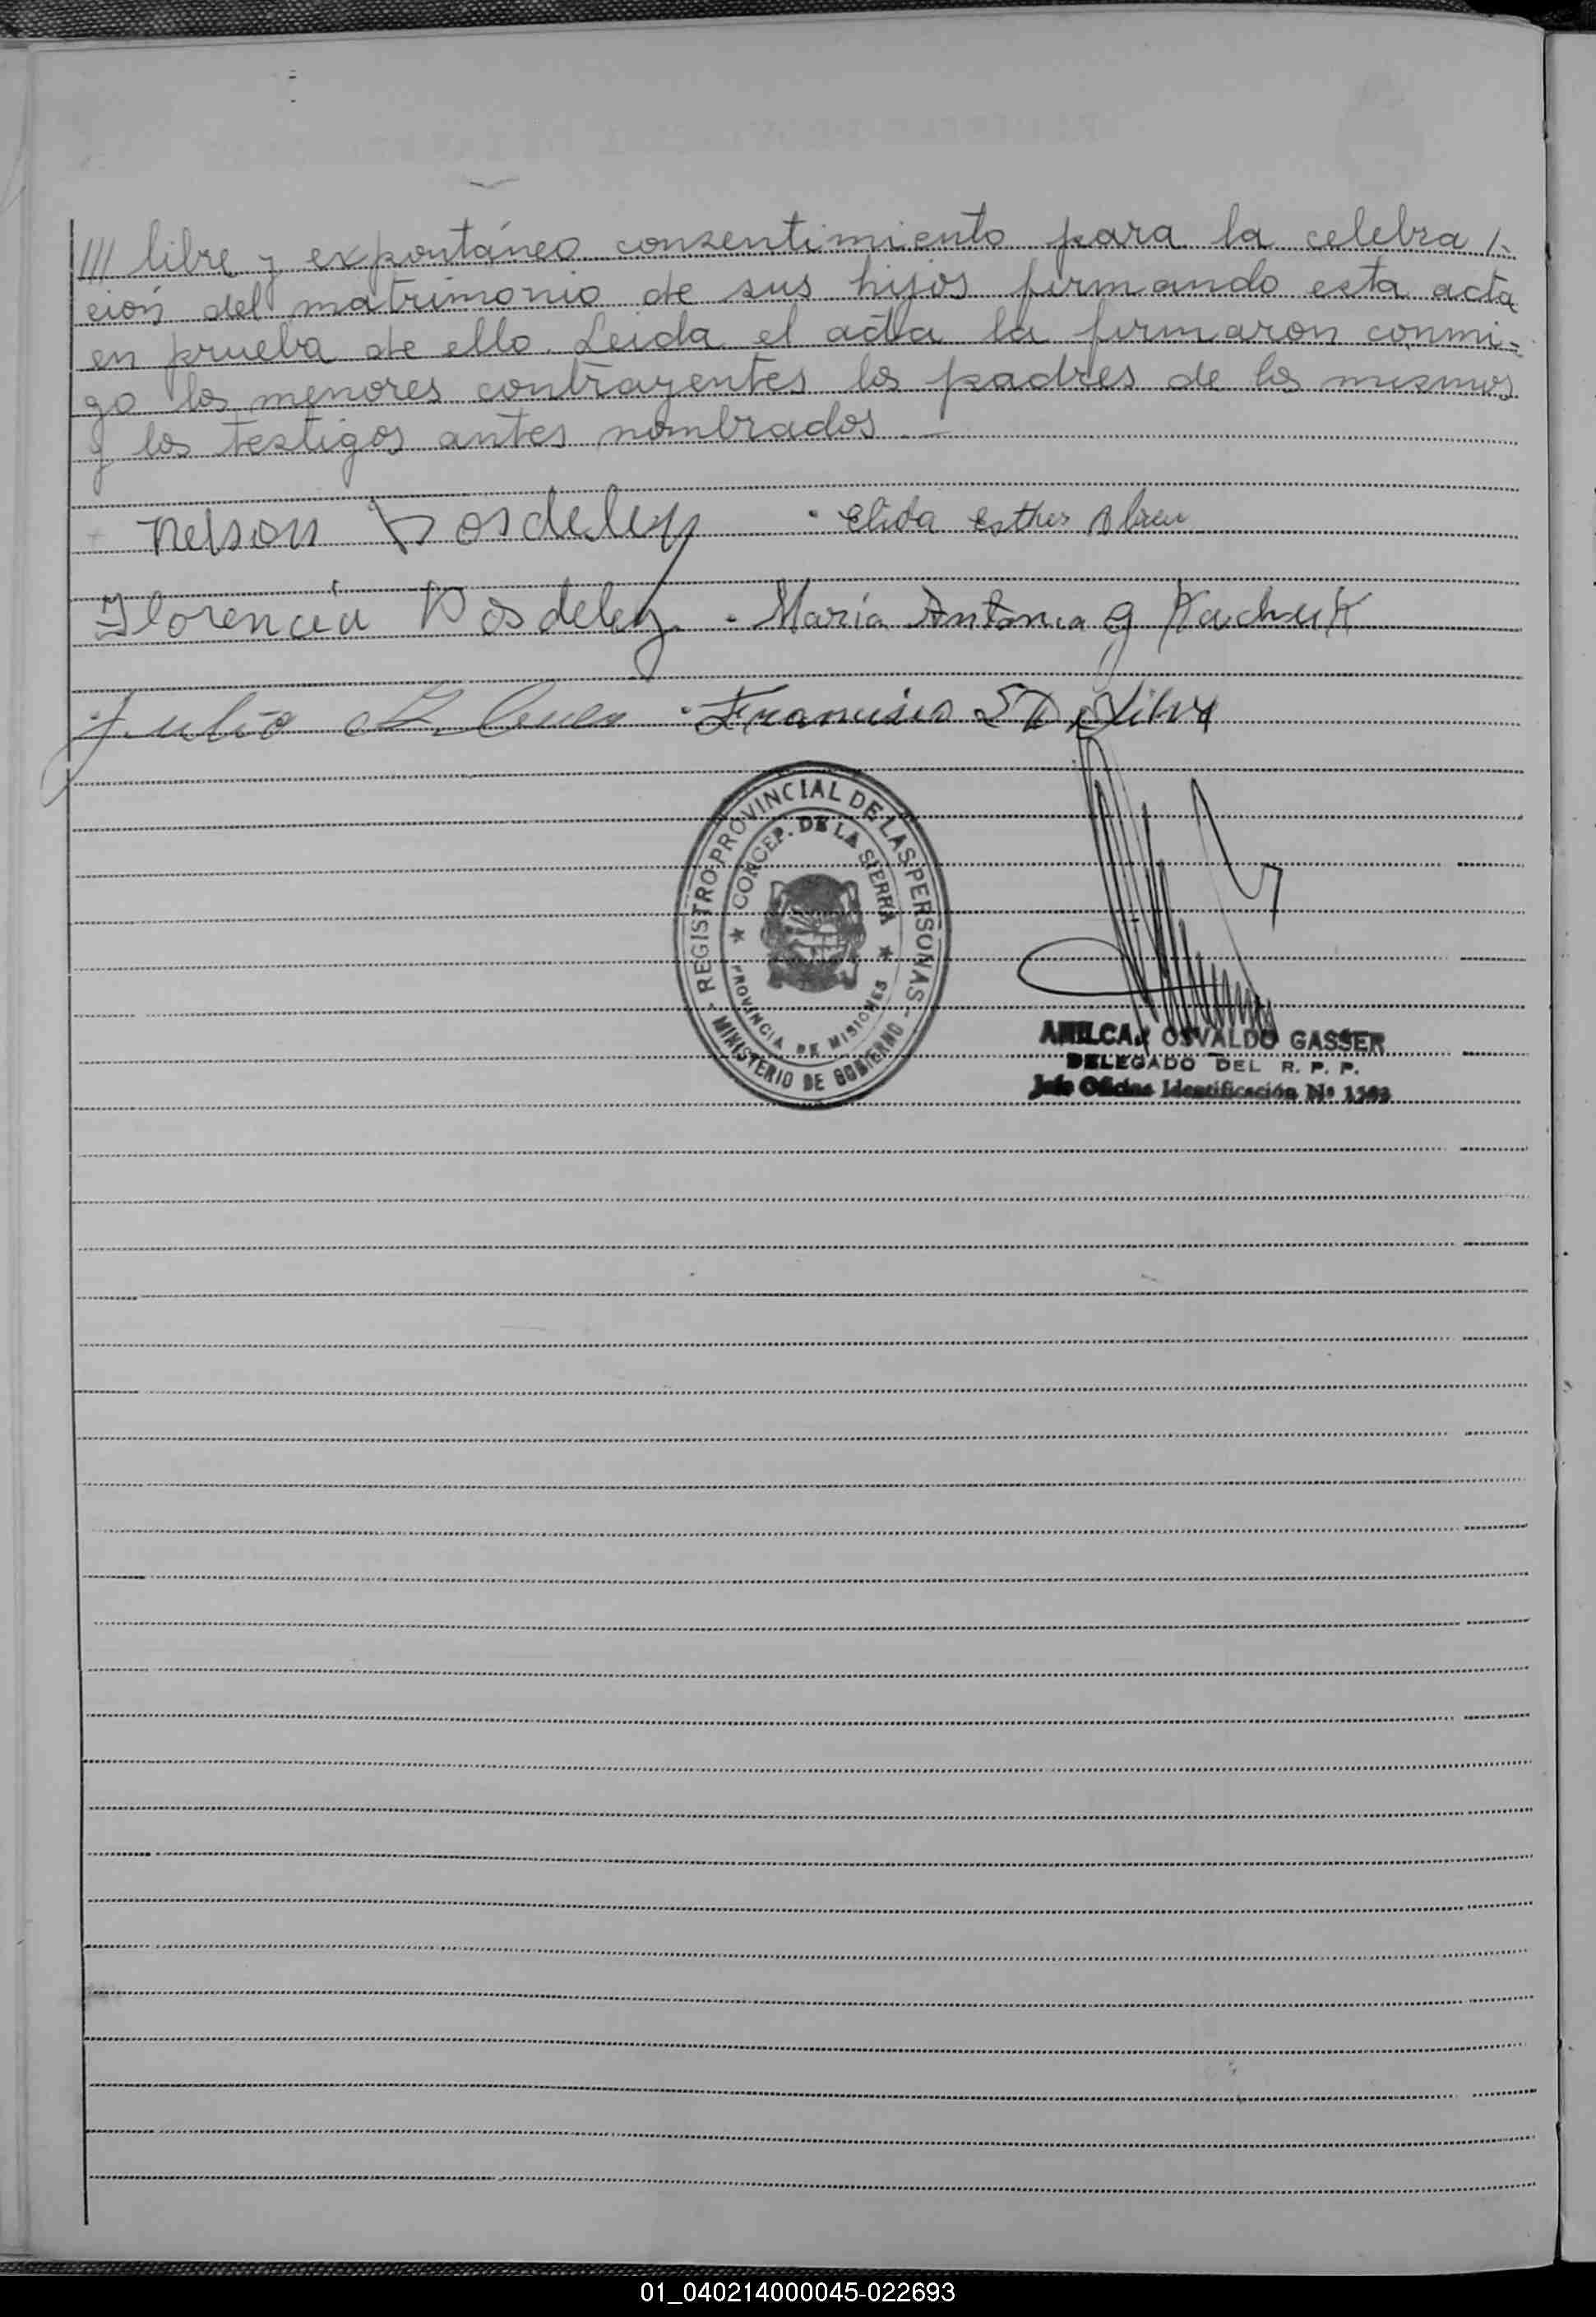 /// libre y expontáneo consentimiento para la celebra /-
ción del matrimonio de sus hijos firmando esta acta
en prueba de ello. Leida el acta la firmaron conmi-
go los menores contrayentes los padres de los mismos
y los testigos antes nombrados. —
Nelson Dosdeley · Elida Esther Abreu
Florencia Dosdeley. · Maria Antonia G Kachuk
Julio · Francisco D Silva
REGISTRO PROVINCIAL DE LAS PERSONAS
CONCEP. DE LA SIERRA
PROVINCIA DE MISIONES
MINISTERIO DE GOBIERNO
AMILCAR OSVALDO GASSER
DELEGADO DEL R. P. P.
Jefe Oficina Identificación Nº
01_040214000045-022693